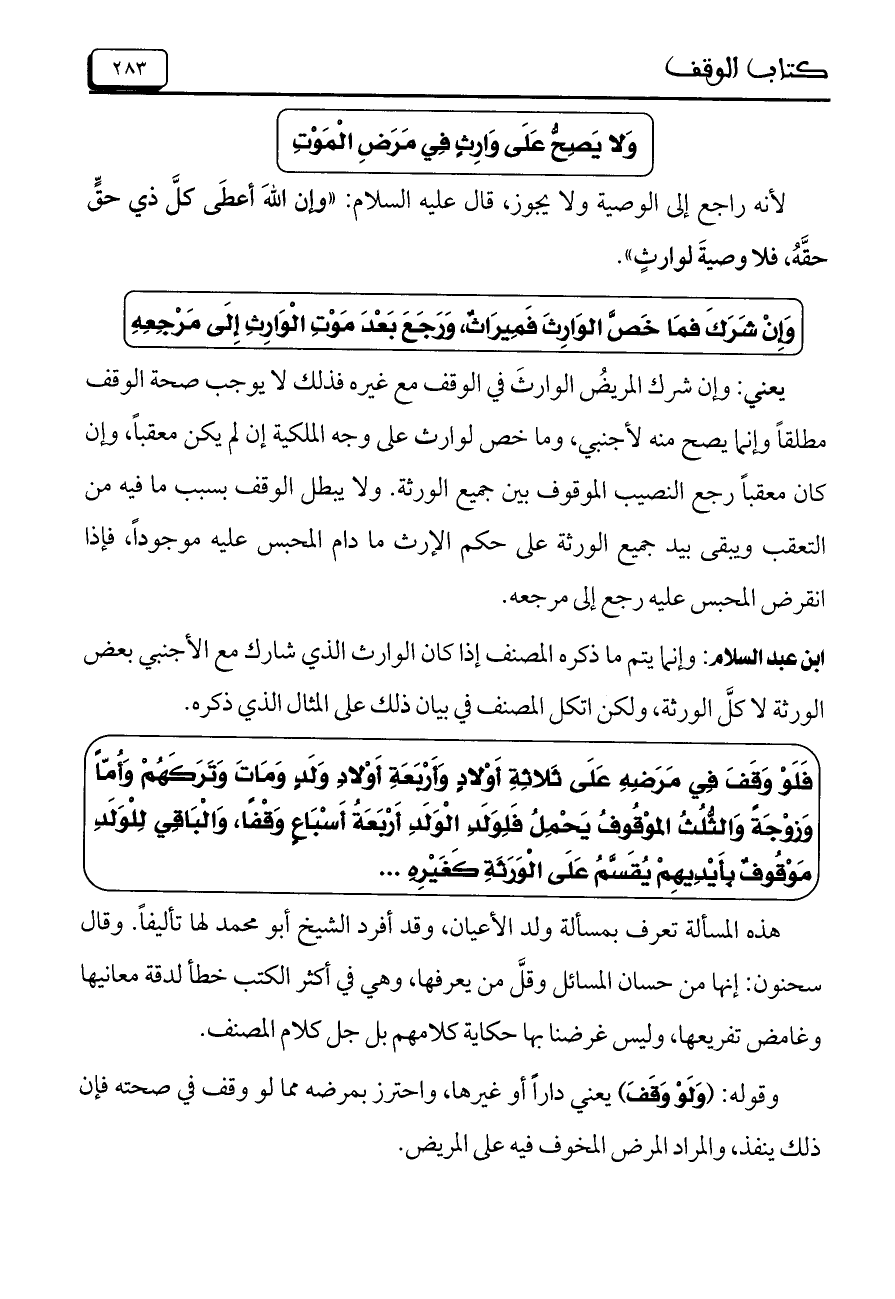 كتاب الوقف ٢٨٣
وَلا يَصِحُّ عَلَى وَارِثٍ فِي مَرَضِ الْمَوْتِ
لأنه راجع إلى الوصية ولا يجوز، قال عليه السلام: «وإن اللهَ أعطَى كلَّ ذي حقٍّ
حقَّهُ، فلا وصيةَ لوارثٍ».
وَإِنْ شَرَكَ فمَا خَصَّ الوارِثَ فَمِيرَاثٌ، وَرَجَعَ بَعْدَ مَوْتِ الْوَارِثِ إِلَى مَرْجِعِهِ
يعني: وإن شرك المريضُ الوارثَ في الوقف مع غيره فذلك لا يوجب صحة الوقف
مطلقاً وإنما يصح منه لأجنبي، وما خص لوارث على وجه الملكية إن لم يكن معقباً، وإن
كان معقباً رجع النصيب الموقوف بين جميع الورثة. ولا يبطل الوقف بسبب ما فيه من
التعقب ويبقى بيد جميع الورثة على حكم الإرث ما دام المحبس عليه موجوداً، فإذا
انقرض المحبس عليه رجع إلى مرجعه.
ابن عبد السلام: وإنما يتم ما ذكره المصنف إذا كان الوارث الذي شارك مع الأجنبي بعض
الورثة لا كلَّ الورثة، ولكن اتكل المصنف في بيان ذلك على المثال الذي ذكره.
فَلَوْ وَقَفَ فِي مَرَضِهِ عَلَى ثَلاثَةِ أَوْلادٍ وَأَرْبَعَةِ أَوْلادِ وَلَدٍ وَمَاتَ وَتَرَكَهُمْ وَأُمّاً
وَزَوْجَةً وَالثُّلُثُ المَوْقُوفُ يَحْمِلُ فَلِوَلَدِ الْوَلَدِ أَرْبَعَةُ أَسْبَاعٍ وَقْفًا، وَالْبَاقِي لِلْوَلَدِ
مَوْقُوفٌ بِأَيْدِيهِمْ يُقَسَّمُ عَلَى الْوَرَثَةِ كَغَيْرِهِ ...
هذه المسألة تعرف بمسألة ولد الأعيان، وقد أفرد الشيخ أبو محمد لها تأليفاً. وقال
سحنون: إنها من حسان المسائل وقلَّ من يعرفها، وهي في أكثر الكتب خطأ لدقة معانيها
وغامض تفريعها، وليس غرضنا بها حكاية كلامهم بل جل كلام المصنف.
وقوله: (وَلَوْ وَقَفَ) يعني داراً أو غيرها، واحترز بمرضه مما لو وقف في صحته فإن
ذلك ينفذ، والمراد المرض المخوف فيه على المريض.